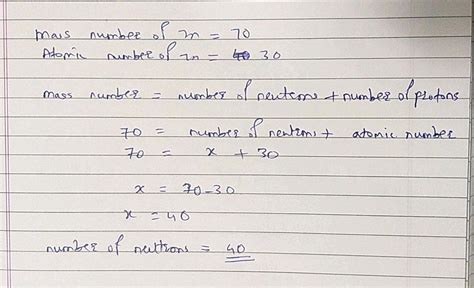 Mass number of Zn = 70
Atomic number of Zn = 40 30
mass number = number of neutrons + number of protons
70 = number of neutrons + atomic number
70 = x + 30
x = 70-30
x = 40
number of neutrons = 40